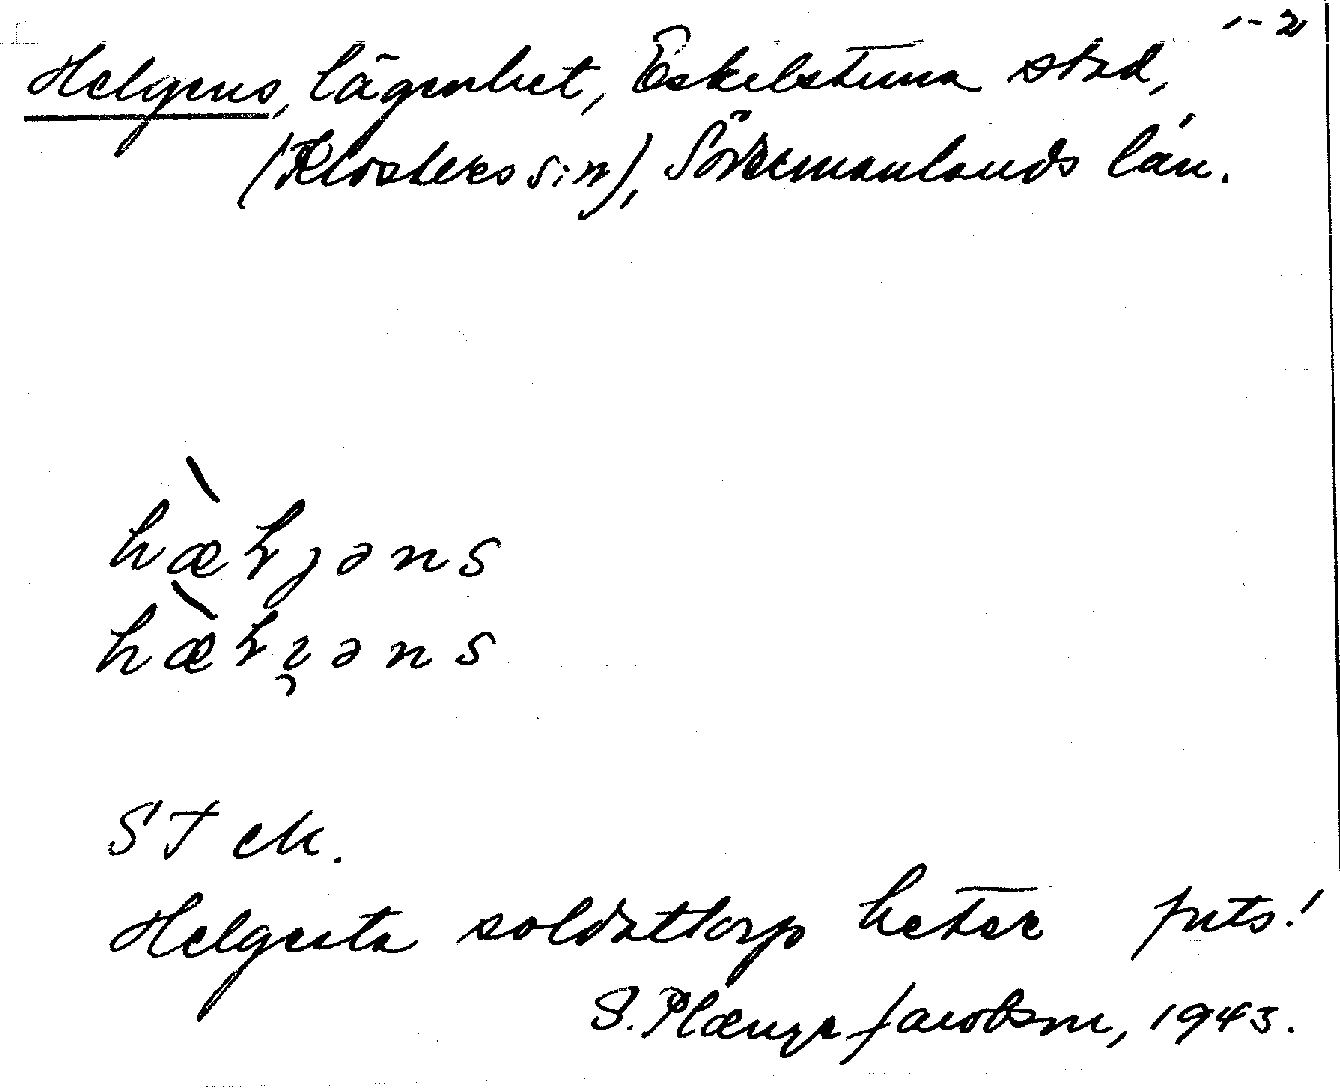 1-2
Helgens, lägenhet, Eskilstuna stad,
(Klosters sn), Södermanlands län.
hæ̀ƚjəns
hæ̀ƚı̨əns
ST ek.
Helgesta soldattorp heter puts!
S. Plænge Jacobson, 1943.